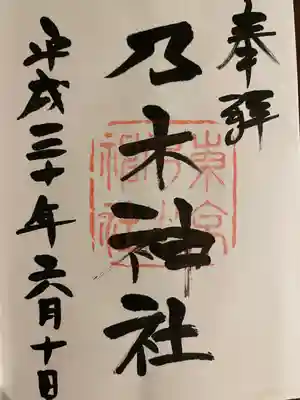 奉拜
乃木神社
平成三十年六月十日
東京
乃木
神社